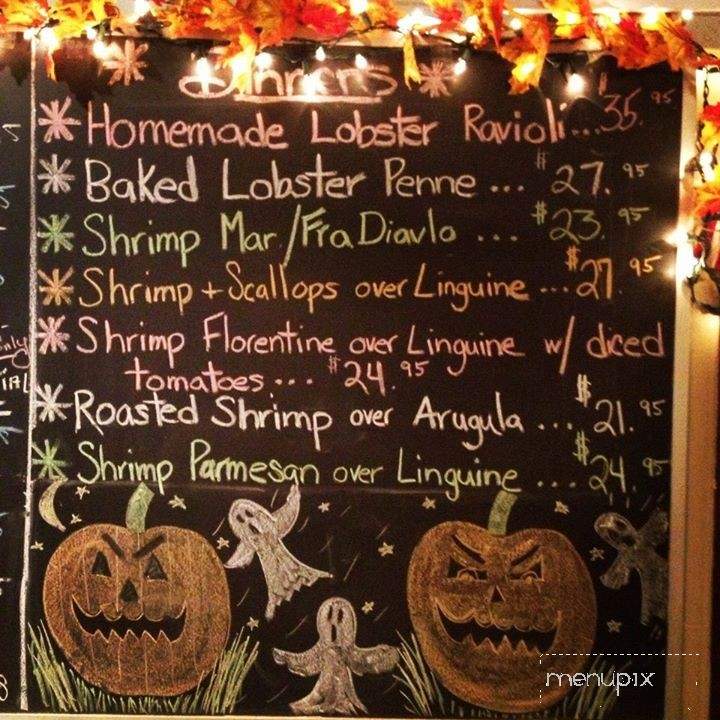 Dinners
Homemade Lobster Ravioli... $35.95
Baked Lobster Penne... $27.95
Shrimp Mar./Fra Diavlo ... $23.95
Shrimp + Scallops over Linguine ... $27.95
Shrimp Florentine over Linguine w/ diced
tomatoes... $24.95
Roasted Shrimp over Arugula ... $21.95
Shrimp Parmesan over Linguine ... $24.95
menupix